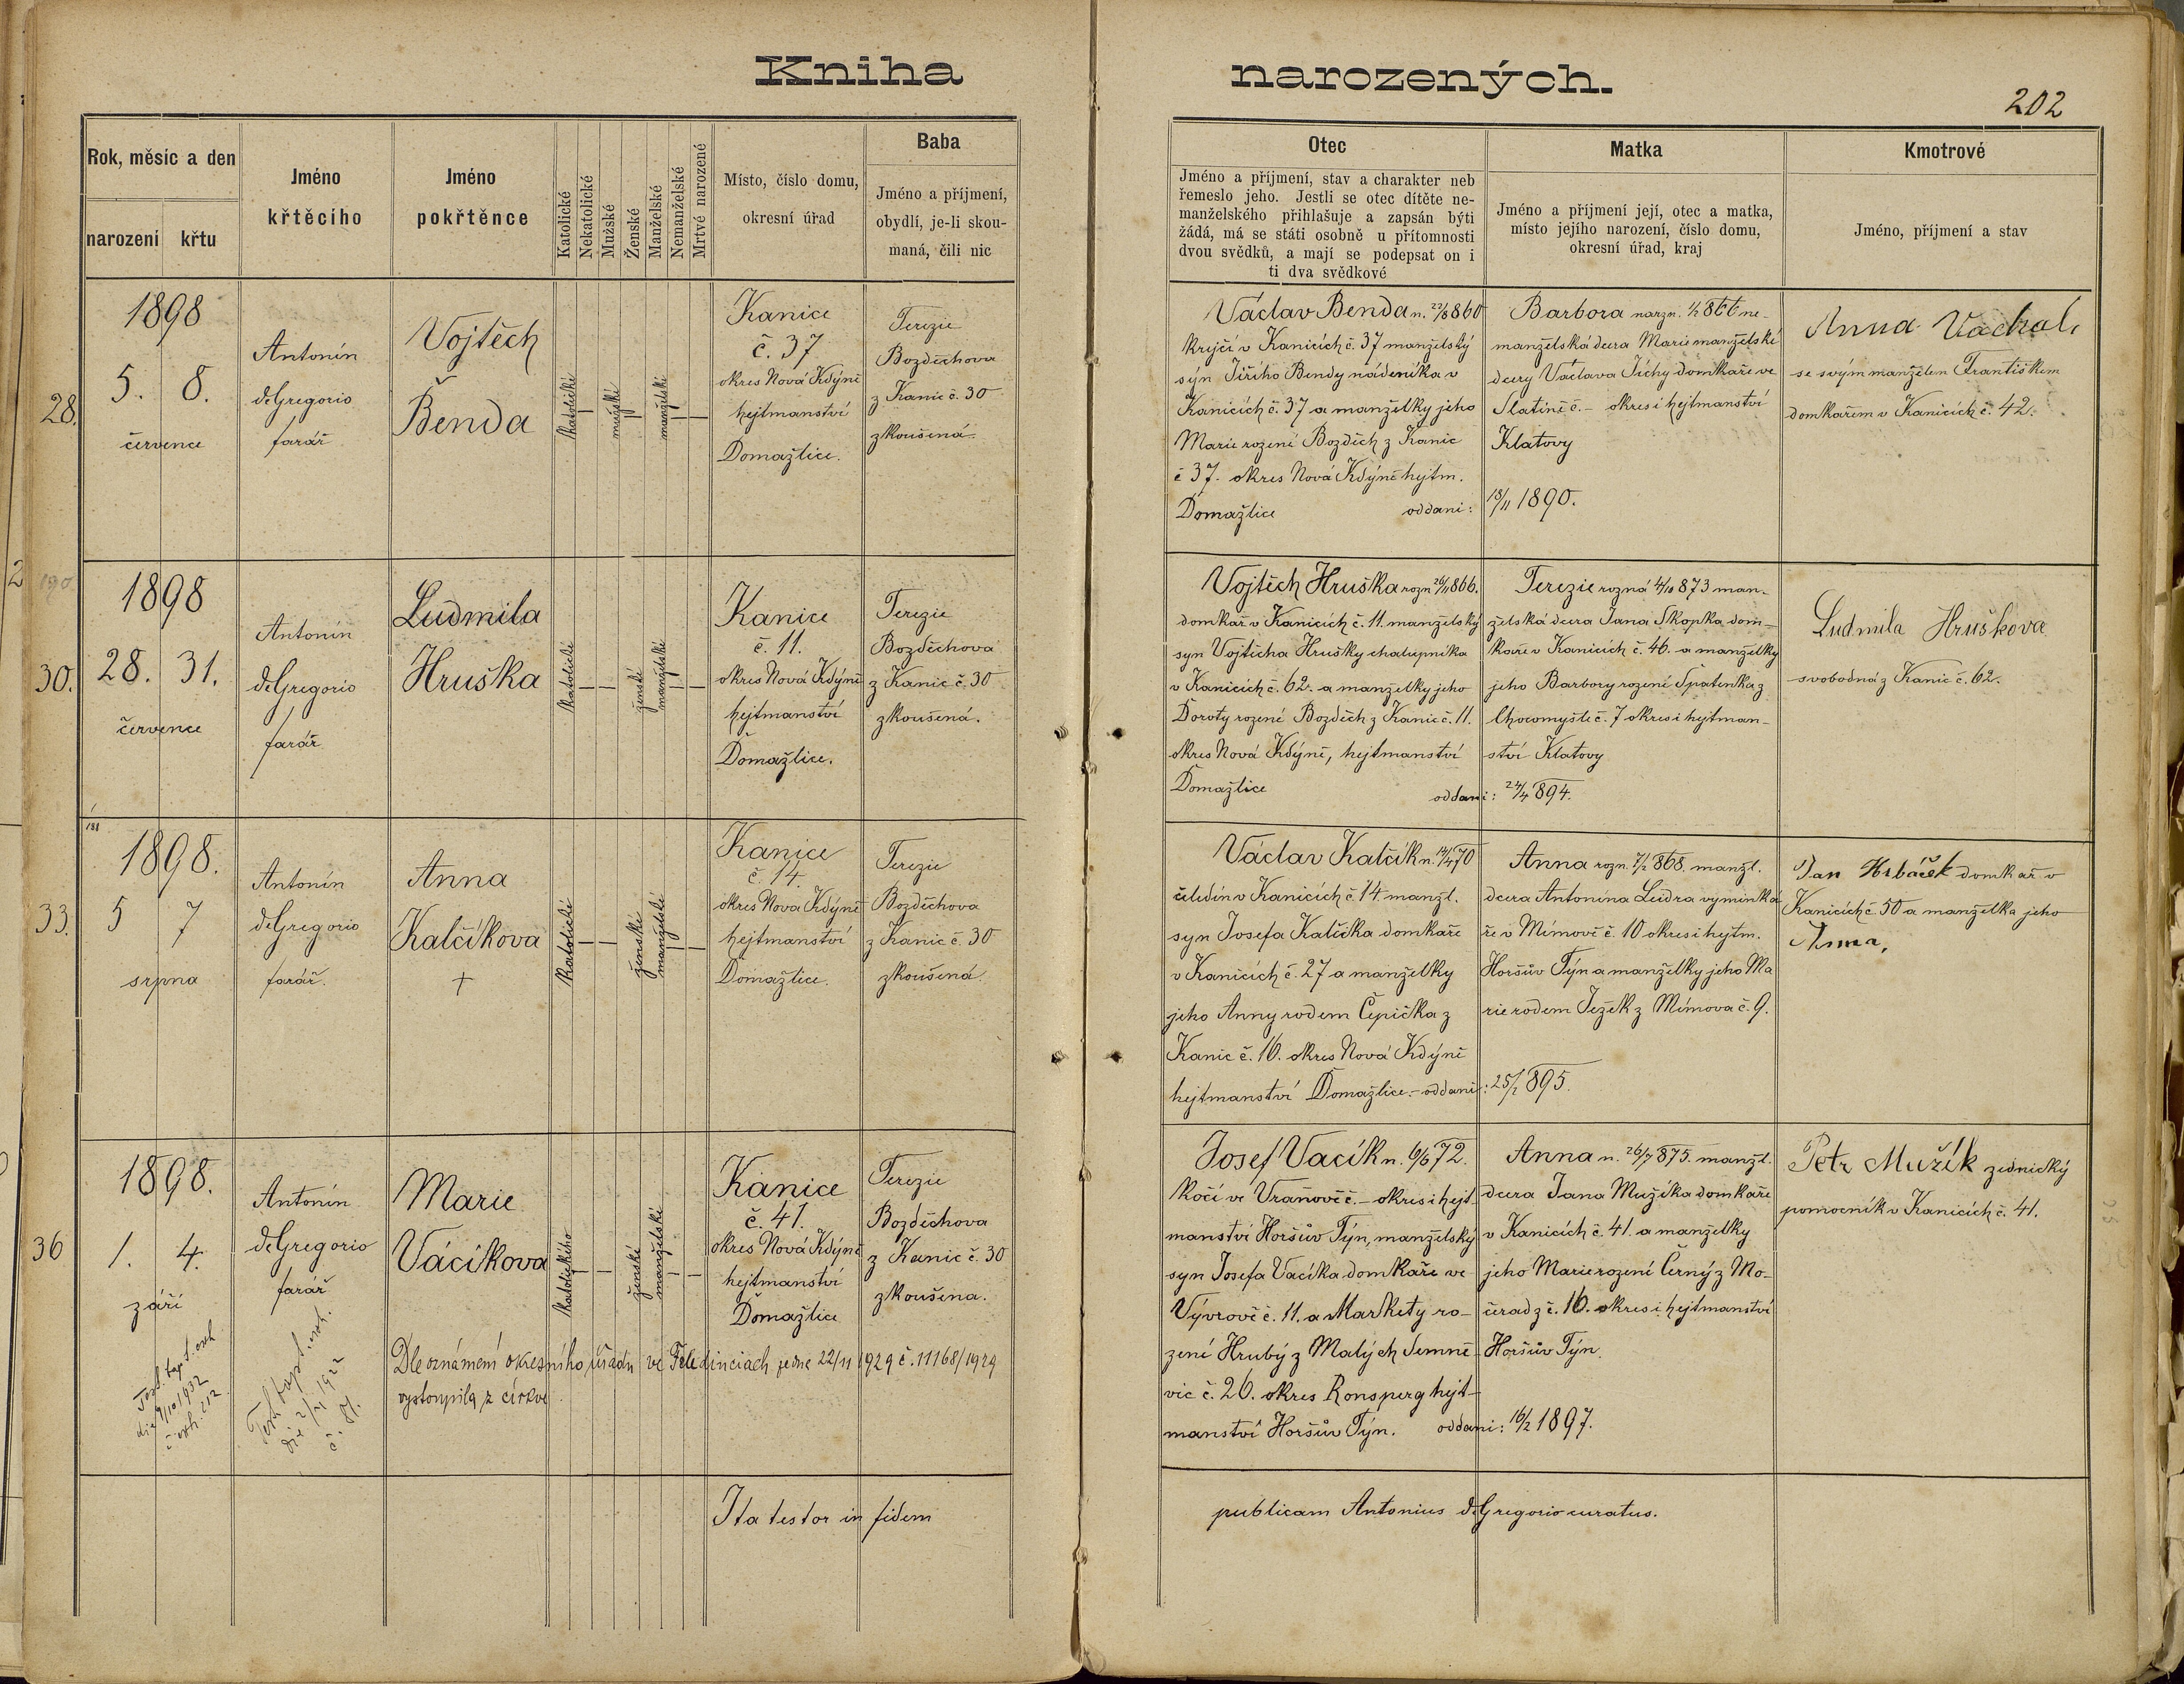 Kniha narozených.
202
Rok, měsíc a den
narození
křtu
Jméno
křtěcího
Jméno
pokřtěnce
Katolické
Nekatolické
Mužské
Ženské
Manželské
Nemanželské
Mrtvé narozené
Místo, číslo domu,
okresní úřad
Baba
Jméno a příjmení,
obydlí, je-li skou-
maná, čili nic
Otec
Jméno a příjmení, stav a charakter neb
řemeslo jeho. Jestli se otec dítěte ne-
manželského přihlašuje a zapsán býti
žádá, má se státi osobně u přítomnosti
dvou svědků, a mají se podepsat on i
ti dva svědkové
Matka
Jméno a příjmení její, otec a matka,
místo jejího narození, číslo domu,
okresní úřad, kraj
Kmotrové
Jméno, příjmení a stav
28.
1898
5. 8.
července
Antonín
deGregorio
farář
Vojtěch
Benda
katolické
mužské
manželské
Kanice
č. 37
okres Nová Kdýně
hejtmanství
Domažlice.
Terezie
Bozděchova
z Kanic č. 30
zkoušená
Václav Benda n. 860
krejčí v Kanicích č. 37 manželský
syn Jiřího Bendy nádeníka v
Kanicích č. 37 a manželky jeho
Marie rozené Bozděch z Kanic
č 37. okres Nová Kdýně hejtm.
Domažlice oddani:
Barbora narzn. 1/2 866 ne-
manželská dcera Marie manželské
dcery Václava Tichy domkaře ve
Slatině č. – okres i hejtmanství
Klatovy
18/11 1890.
Anna
se svým manželem Františkem
domkařem v Kanicích č. 42.
190
30.
1898
28. 31.
července
Antonín
deGregorio
farář
Ludmila
Hruška
katolické
ženské
manželské
Kanice
č. 11.
okres Nová Kdýně
hejtmanství
Domažlice.
Terezie
Bozděchova
z Kanic č. 30
zkoušená.
Vojtěch Hruška rozn 26/11 866.
domkář v Kanicích č. 11. manželský
syn Vojtěcha Hrušky chalupníka
v Kanicích č. 62. a manželky jeho
Doroty rozené Bozděch z Kanic č. 11.
okres Nová Kdýně, hejtmanství
Domažlice oddani: 24/4 894.
Terezie rozná 4/10 873 man-
želská dcera Jana Skopka dom-
kaře v Kanicích č. 46. a manželky
jeho Barbory rozené Špatenka z
Chocomyšle č. 7 okres i hejtman-
ství Klatovy
Ludmila Hruškova
svobodná z Kanic č. 62.
191
33.
1898.
5 7
srpna
Antonín
deGregorio
farář.
Anna
Kalčíkova
+
katolické
ženské
manželské
Kanice
č. 14.
okres Nova Kdýně
hejtmanství
Domažlice.
Terezie
Bozděchova
z Kanic č. 30
zkoušená.
Václav Kalčík n. 14/4 70
čeledín v Kanicích č. 14. manžl.
syn Josefa Kalčíka domkaře
v Kanicích č. 27 a manželky
jeho Anny rodem Čepička z
Kanic č. 16. okres Nová Kdýně
hejtmanství Domažlice. – oddani: 25/2 895.
Anna rozn. 7/2 868. manžl.
dcera Antonína Leidra vyminká
ře v Mímově č. 10 okres i hejtm.
Horšův Týn a manželky jeho Ma
rie rodem Ježek z Mímova č. 9.
Jan Hrbáček domkař v
Kanicích č 50 a manželka jeho
Anna,
36
1898.
1. 4.
září
Antonín
deGregorio
farář
Marie
Vácíkova
katolického
ženské
manželské
Kanice
č. 41.
okres Nová Kdýně
hejtmanství
Domažlice
Terezie
Bozděchova
z Kanic č. 30
zkoušena.
Dle oznámení okresního úřadu ve Feledinciach ze dne 22/11 1929 č. 11168/1929
vystoupila z církve
Test. bapt. exh.
die 9/10 1932
č. exh. 212
Test. bapt. exh.
č. 81.
Josef Vacík n. 6/6 72.
kočí ve Vraňově č. – okres i hejt-
manství Horšův Týn, manželský
syn Josefa Vacíka domkaře ve
Vývrově č. 11. a Markety ro-
zené Hrubý z Malých Semně-
vic č. 26. okres Ronsperg hejt-
manství Horšův Týn. oddani: 16/2 1897.
Anna n. 26/7 875. manžl.
dcera Jana Mužíka domkaře
v Kanicích č. 41. a manželky
jeho Marie rozené Černý z Mo-
čerad z č. 16. okres i hejtmanství
Horšův Týn.
Petr Mužík zednický
pomocník v Kanicích č. 41.
Ita testor in fidem publicam Antonius deGregorio curatus.